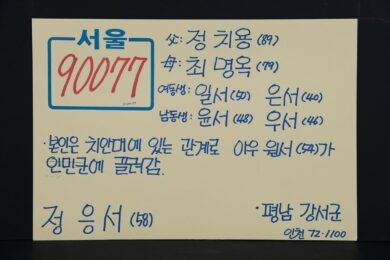 서울
90077
父: 정 치용 (89)
母: 최 명옥 (79)
여동생: 일서 (50) 은서 (40)
남동생: 윤서 (48) 우서 (46)
· 본인은 치안대에 있는 관계로 아우 원서 (54)가
인민군에 끌려감.
정 응서 (58)
· 평남 강서군
인천 72·1100